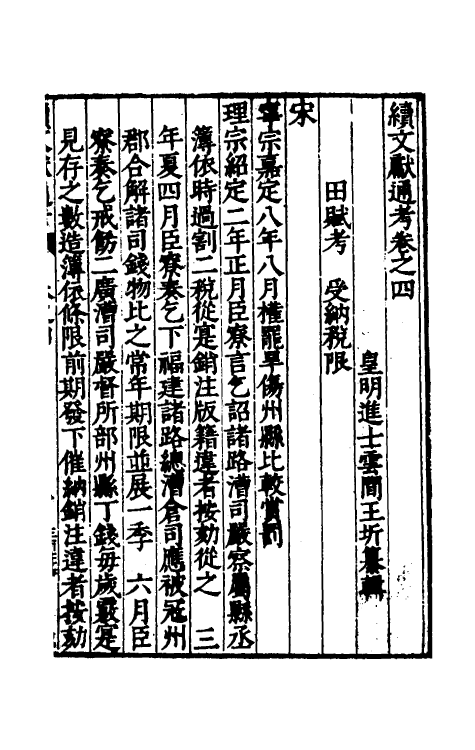 續文獻通考卷之四
皇明進士雲間王圻纂輯
田賦考　受納稅限
宋
寧宗嘉定八年八月權罷旱傷州縣比較賞罰
理宗紹定二年正月臣寮言乞詔諸路漕司嚴察屬縣丞
簿依時過割二稅從寔銷注版籍違者按劾從之　三
年夏四月臣寮奏乞下福建諸路總漕倉司應被寇州
郡合解諸司錢物比之常年期限並展一季　六月臣
寮奏乞戒飭二廣漕司嚴督所部州縣丁錢每歲覈寔
見存之數造簿依條限前期發下催納銷注違者按劾